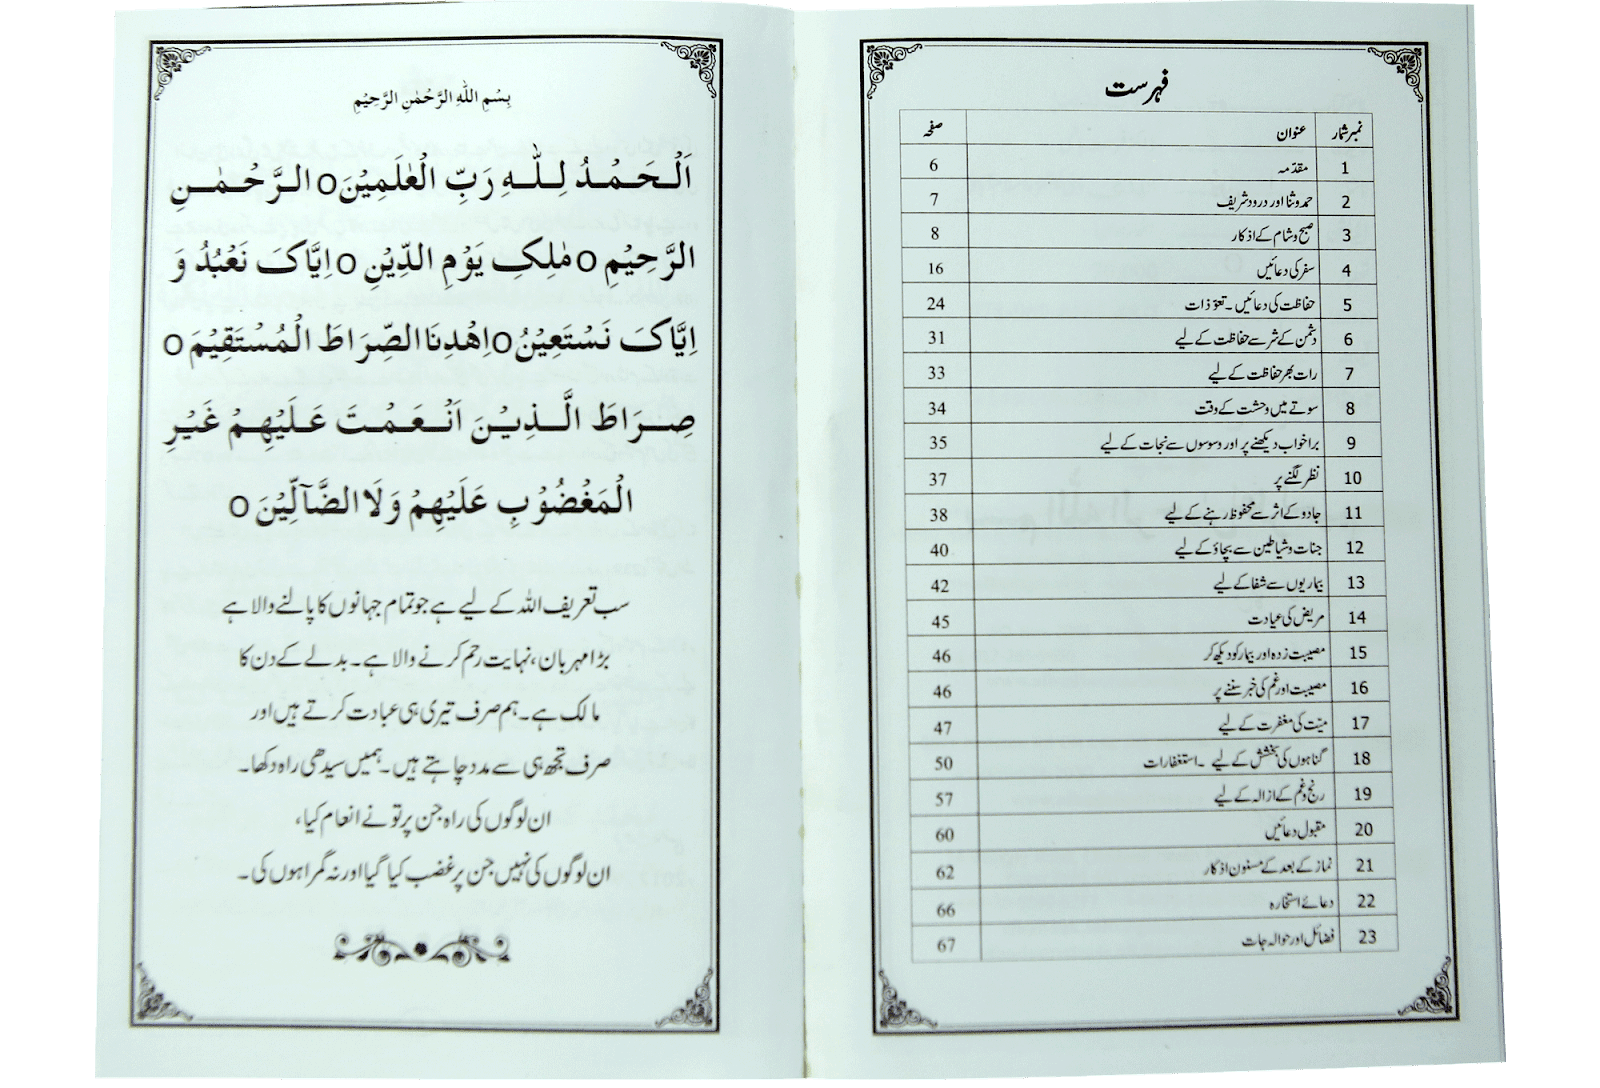 فہرست
نمبر شمار عنوان صفحہ
1 مقدّمہ 6
2 حمد و ثنا اور درود شریف 7
3 صبح و شام کے اذکار 8
4 سفر کی دعائیں 16
5 حفاظت کی دعائیں ۔ تعوّذات 24
6 دشمن کے شر سے حفاظت کے لیے 31
7 رات بھر حفاظت کے لیے 33
8 سوتے میں وحشت کے وقت 34
9 برا خواب دیکھنے پر اور وسوسوں سے نجات کے لیے 35
10 نظر لگنے پر 37
11 جادو کے اثر سے محفوظ رہنے کے لیے 38
12 جنات و شیاطین سے بچاؤ کے لیے 40
13 بیماریوں سے شفا کے لیے 42
14 مریض کی عیادت 45
15 مصیبت زدہ اور بیمار کو دیکھ کر 46
16 مصیبت اور غم کی خبر سننے پر 46
17 میّت کی مغفرت کے لیے 47
18 گناہوں کی بخشش کے لیے ۔ استغفارات 50
19 رنج و غم کے ازالہ کے لیے 57
20 مقبول دعائیں 60
21 نماز کے بعد کے مسنون اذکار 62
22 دعائے استخارہ 66
23 فضائل اور حوالہ جات 67
بِسْمِ اللهِ الرَّحْمٰنِ الرَّحِيْمِ
اَلْحَمْدُ لِلّٰهِ رَبِّ الْعٰلَمِيْنَ o الرَّحْمٰنِ
الرَّحِيْمِ o مٰلِكِ يَوْمِ الدِّيْنِ o اِيَّاكَ نَعْبُدُ وَ
اِيَّاكَ نَسْتَعِيْنُ o اِهْدِنَا الصِّرَاطَ الْمُسْتَقِيْمَ o
صِرَاطَ الَّذِيْنَ اَنْعَمْتَ عَلَيْهِمْ غَيْرِ
الْمَغْضُوْبِ عَلَيْهِمْ وَلَا الضَّآلِّيْنَ o
سب تعریف اللہ کے لیے ہے جو تمام جہانوں کا پالنے والا ہے
بڑا مہربان، نہایت رحم کرنے والا ہے۔ بدلے کے دن کا
مالک ہے۔ ہم صرف تیری ہی عبادت کرتے ہیں اور
صرف تجھ ہی سے مدد چاہتے ہیں۔ ہمیں سیدھی راہ دکھا۔
ان لوگوں کی راہ جن پر تو نے انعام کیا،
ان لوگوں کی نہیں جن پر غضب کیا گیا اور نہ گمراہوں کی۔